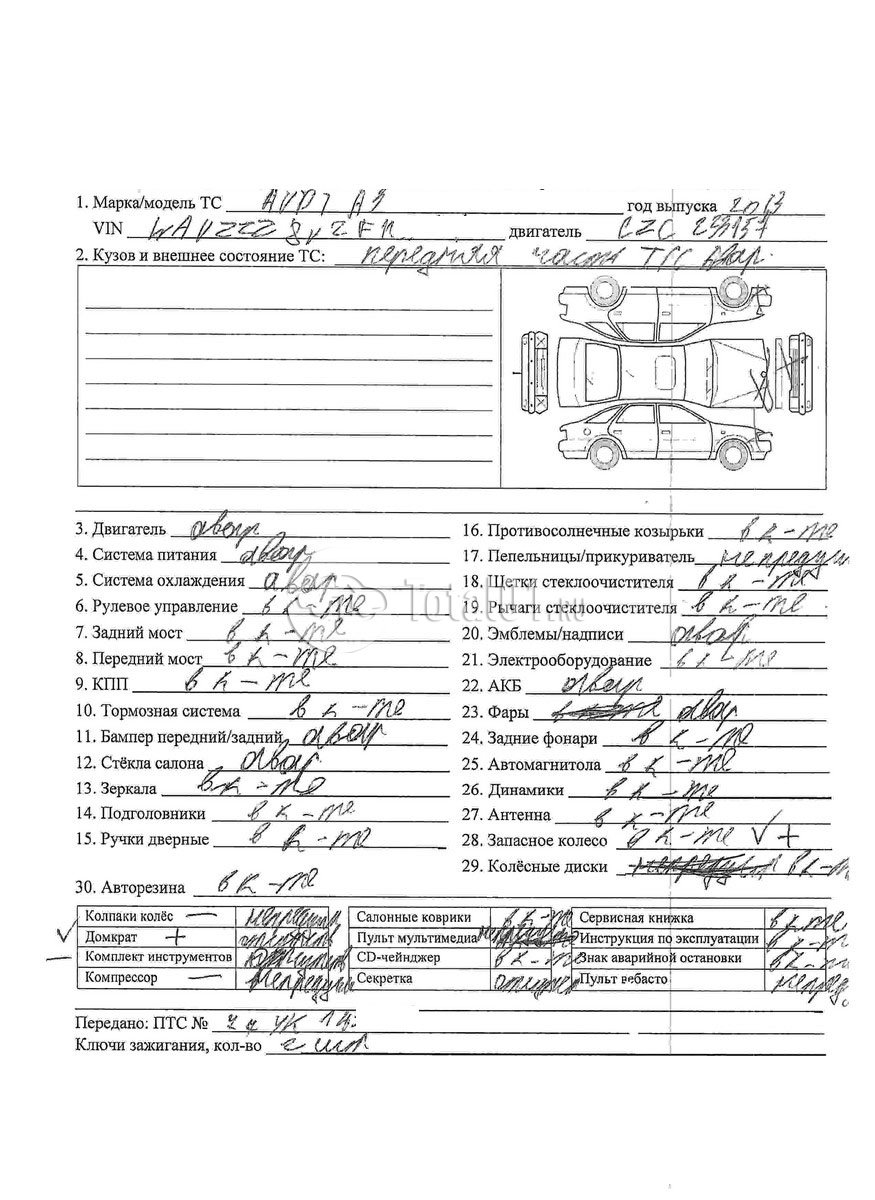 1. Марка/модель ТС AUDI A3 год выпуска 2013
VIN WAUZZZ8V двигатель CZC
2. Кузов и внешнее состояние ТС: передняя часть ТС авар.
3. Двигатель авар
4. Система питания авар
5. Система охлаждения авар
6. Рулевое управление в к-те
7. Задний мост в к-те
8. Передний мост в к-те
9. КПП в к-те
10. Тормозная система в к-те
11. Бампер передний/задний авар
12. Стёкла салона авар
13. Зеркала вк-те
14. Подголовники в к-те
15. Ручки дверные в к-те
16. Противосолнечные козырьки в к-те
17. Пепельницы/прикуриватель
18. Щетки стеклоочистителя в к-те
19. Рычаги стеклоочистителя в к-те
20. Эмблемы/надписи авар
21. Электрооборудование в к-те
22. АКБ авар
23. Фары авар
24. Задние фонари в к-те
25. Автомагнитола в к-те
26. Динамики в к-те
27. Антенна в к-те
28. Запасное колесо к-те V +
29. Колёсные диски в к-те
30. Авторезина вк-те
Колпаки колёс — Салонные коврики в к-те Сервисная книжка в к-те
V Домкрат + Пульт мультимедиа Инструкция по эксплуатации в к-
— Комплект инструментов CD-чейнджер в к-те Знак аварийной остановки в к-
Компрессор — Секретка Пульт вебасто
Передано: ПТС №
Ключи зажигания, кол-во шт
Total01.RU